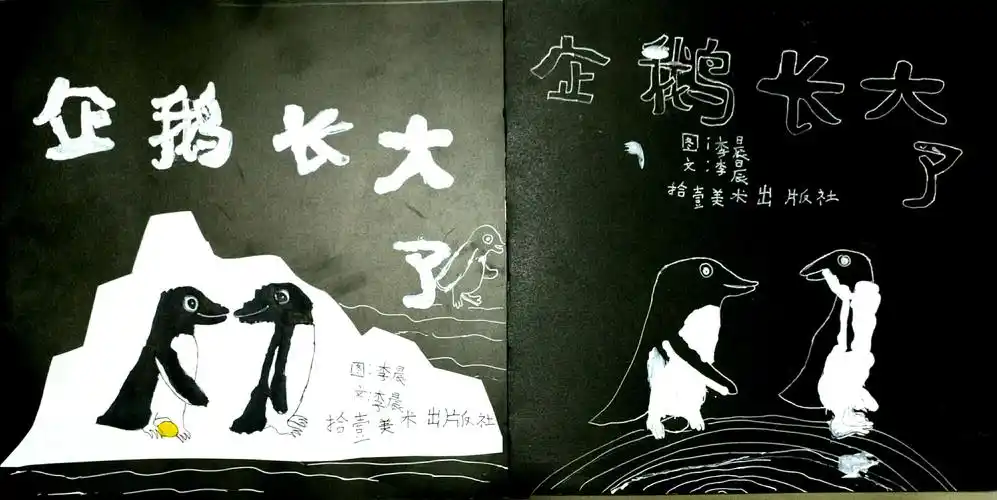 企鹅长大
了
图：李晨
文：李晨
拾壹美术出版社
企鹅长大
了
图：李晨
文：李晨
拾壹美术出版社